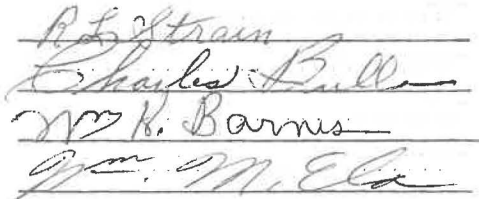 R L Strain
Charles Bull
Wm K. Barnes
Wm. M. Ela